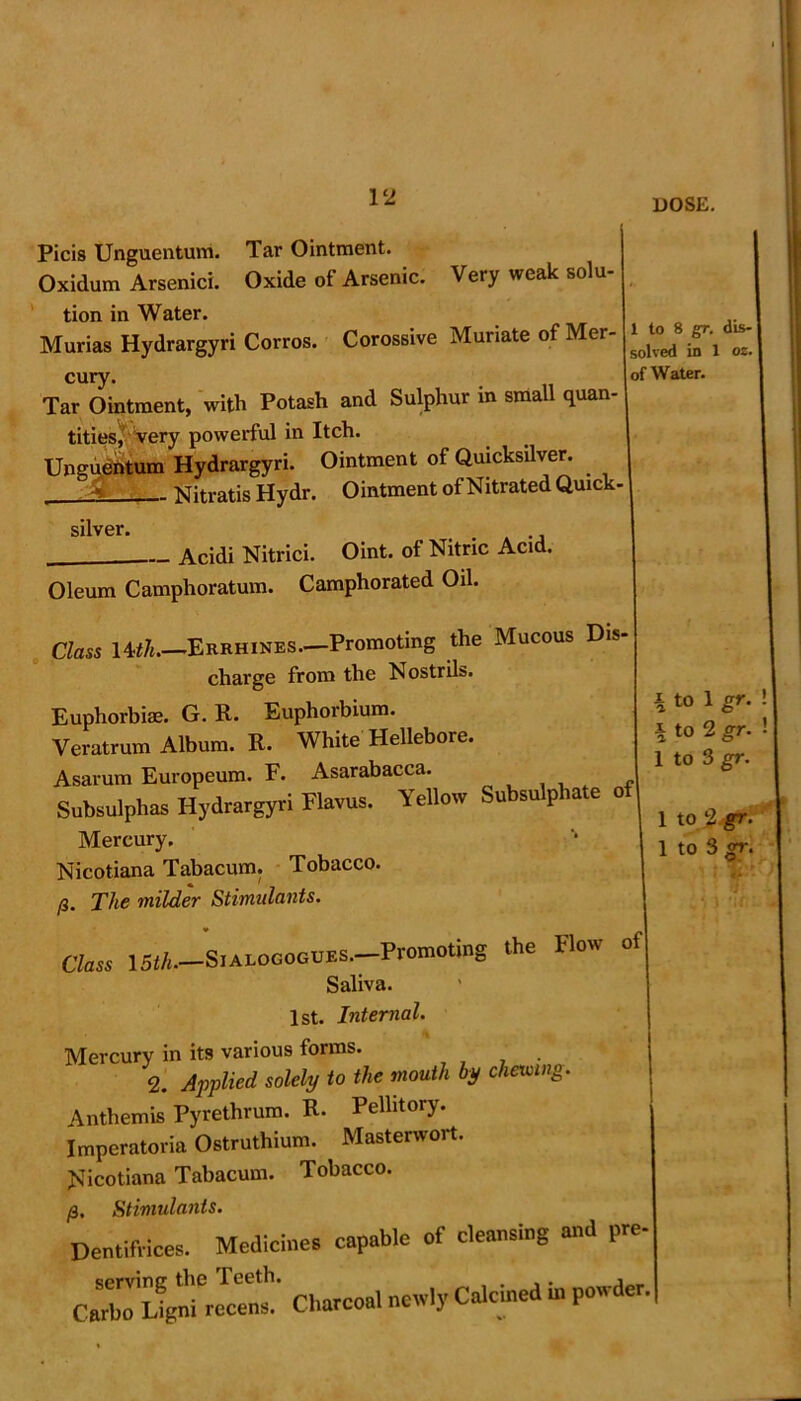 12
DOSE.
Picis Unguentum. Tar Ointment.
Oxidum Arsenici. Oxide of Arsenic. Very weak solu-
tion in Water.
Murias Hydrargyri Corros. Corossive Muriate of Mer-
cury.
1 to 8 gr. dis-
solved in 1 oz.
of Water.
Tar Ointment, with Potash and Sulphur in small quan-
tities, very powerful in Itch.
Unguentum Hydrargyri. Ointment of Quicksilver.
Nitratis Hydr. Ointment of Nitrated Quick-
silver.
Acidi Nitrici. Oint. of Nitric Acid.
Oleum Camphoratum. Camphorated Oil.
Class 14th.—Errhines.—Promoting the Mucous Dis-
charge from the Nostrils.
Euphorbiæ. G. R. Euphorbium. ½ to 1 gr. !
Veratrum Album. R. White Hellebore. ½ to 2 gr. !
Asarum Europeum. F. Asarabacca. 1 to 3 gr.
Subsulphas Hydrargyri Flavus. Yellow Subsulphate of
Mercury. 1 to 2 gr.
Nicotiana Tabacum. Tobacco. 1 to 3 gr.
β. The milder Stimulants.
Class 15th.—Sialogogues.—Promoting the Flow of
Saliva.
1st. Internal.
Mercury in its various forms.
2. Applied solely to the mouth by chewing.
Anthemis Pyrethrum. R. Pellitory.
Imperatoria Ostruthium. Masterwort.
Nicotiana Tabacum. Tobacco.
β. Stimulants.
Dentifrices. Medicines capable of cleansing and pre-
serving the Teeth.
Carbo Ligni recens. Charcoal newly Calcined in powder.